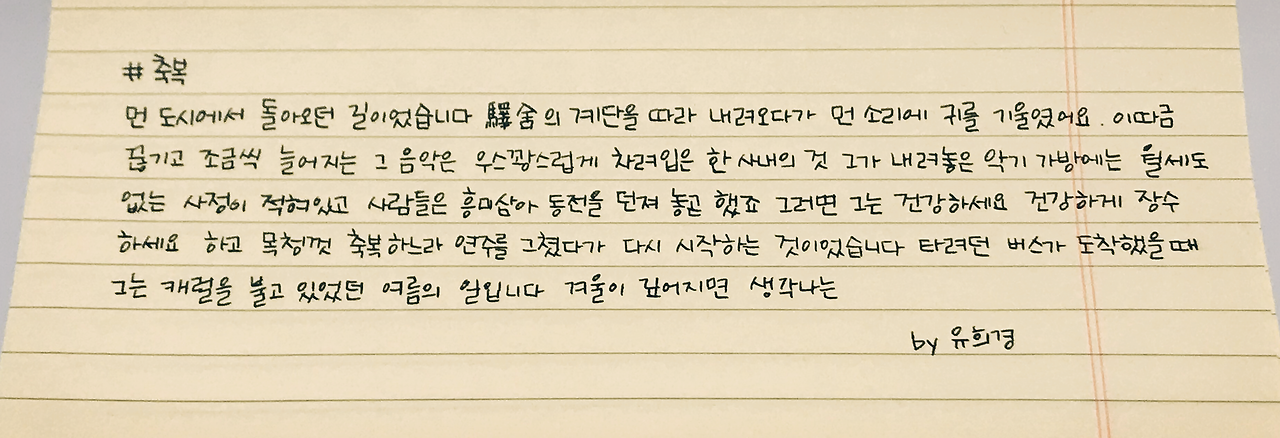 # 축복
먼 도시에서 돌아오던 길이었습니다 驛舍의 계단을 따라 내려오다가 먼 소리에 귀를 기울였어요. 이따금
끊기고 조금씩 늘어지는 그 음악은 우스꽝스럽게 차려입은 한 사내의 것 그가 내려놓은 악기 가방에는 월세도
없는 사정이 적혀있고 사람들은 흥미삼아 동전을 던져 놓곤 했죠 그러면 그는 건강하세요 건강하게 장수
하세요 하고 목청껏 축복하느라 연주를 그쳤다가 다시 시작하는 것이었습니다 타려던 버스가 도착했을 때
그는 캐럴을 불고 있었던 여름의 일입니다 겨울이 깊어지면 생각나는
by 유희경